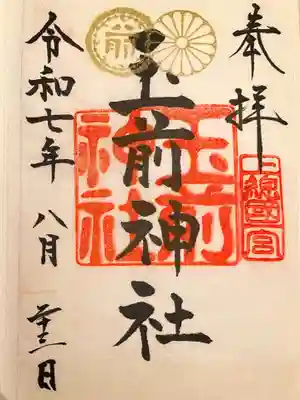 奉拝
上総国一宮
玉前神社
玉前神社
令和七年
八月
二十三日